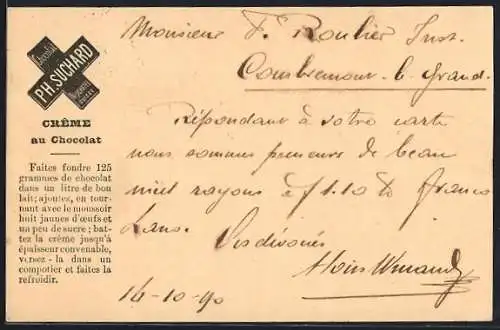 Chocolat
PH. SUCHARD
CRÊME
au Chocolat
Faites fondre 125
grammes de chocolat
dans un litre de bon
lait; ajoutez, en tour-
nant avec le moussoir
huit jaunes d'œufs et
un peu de sucre; bat-
tez la crème jusqu'à
épaisseur convenable,
versez-la dans un
compotier et faites la
refroidir.
Monsieur F. Roulier Inst.
Combremont-l-Grand.
Répondant à votre carte
nous sommes preneurs de beau
miel rayons à f 1.10 franco
Laus.
Vos dévoués
14-10-90